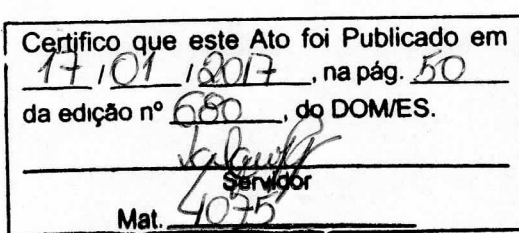 Certifico que este Ato foi Publicado em
17 / 01 / 2017, na pág. 50
da edição nº 680, do DOM/ES.
Servidor
Mat. 4075